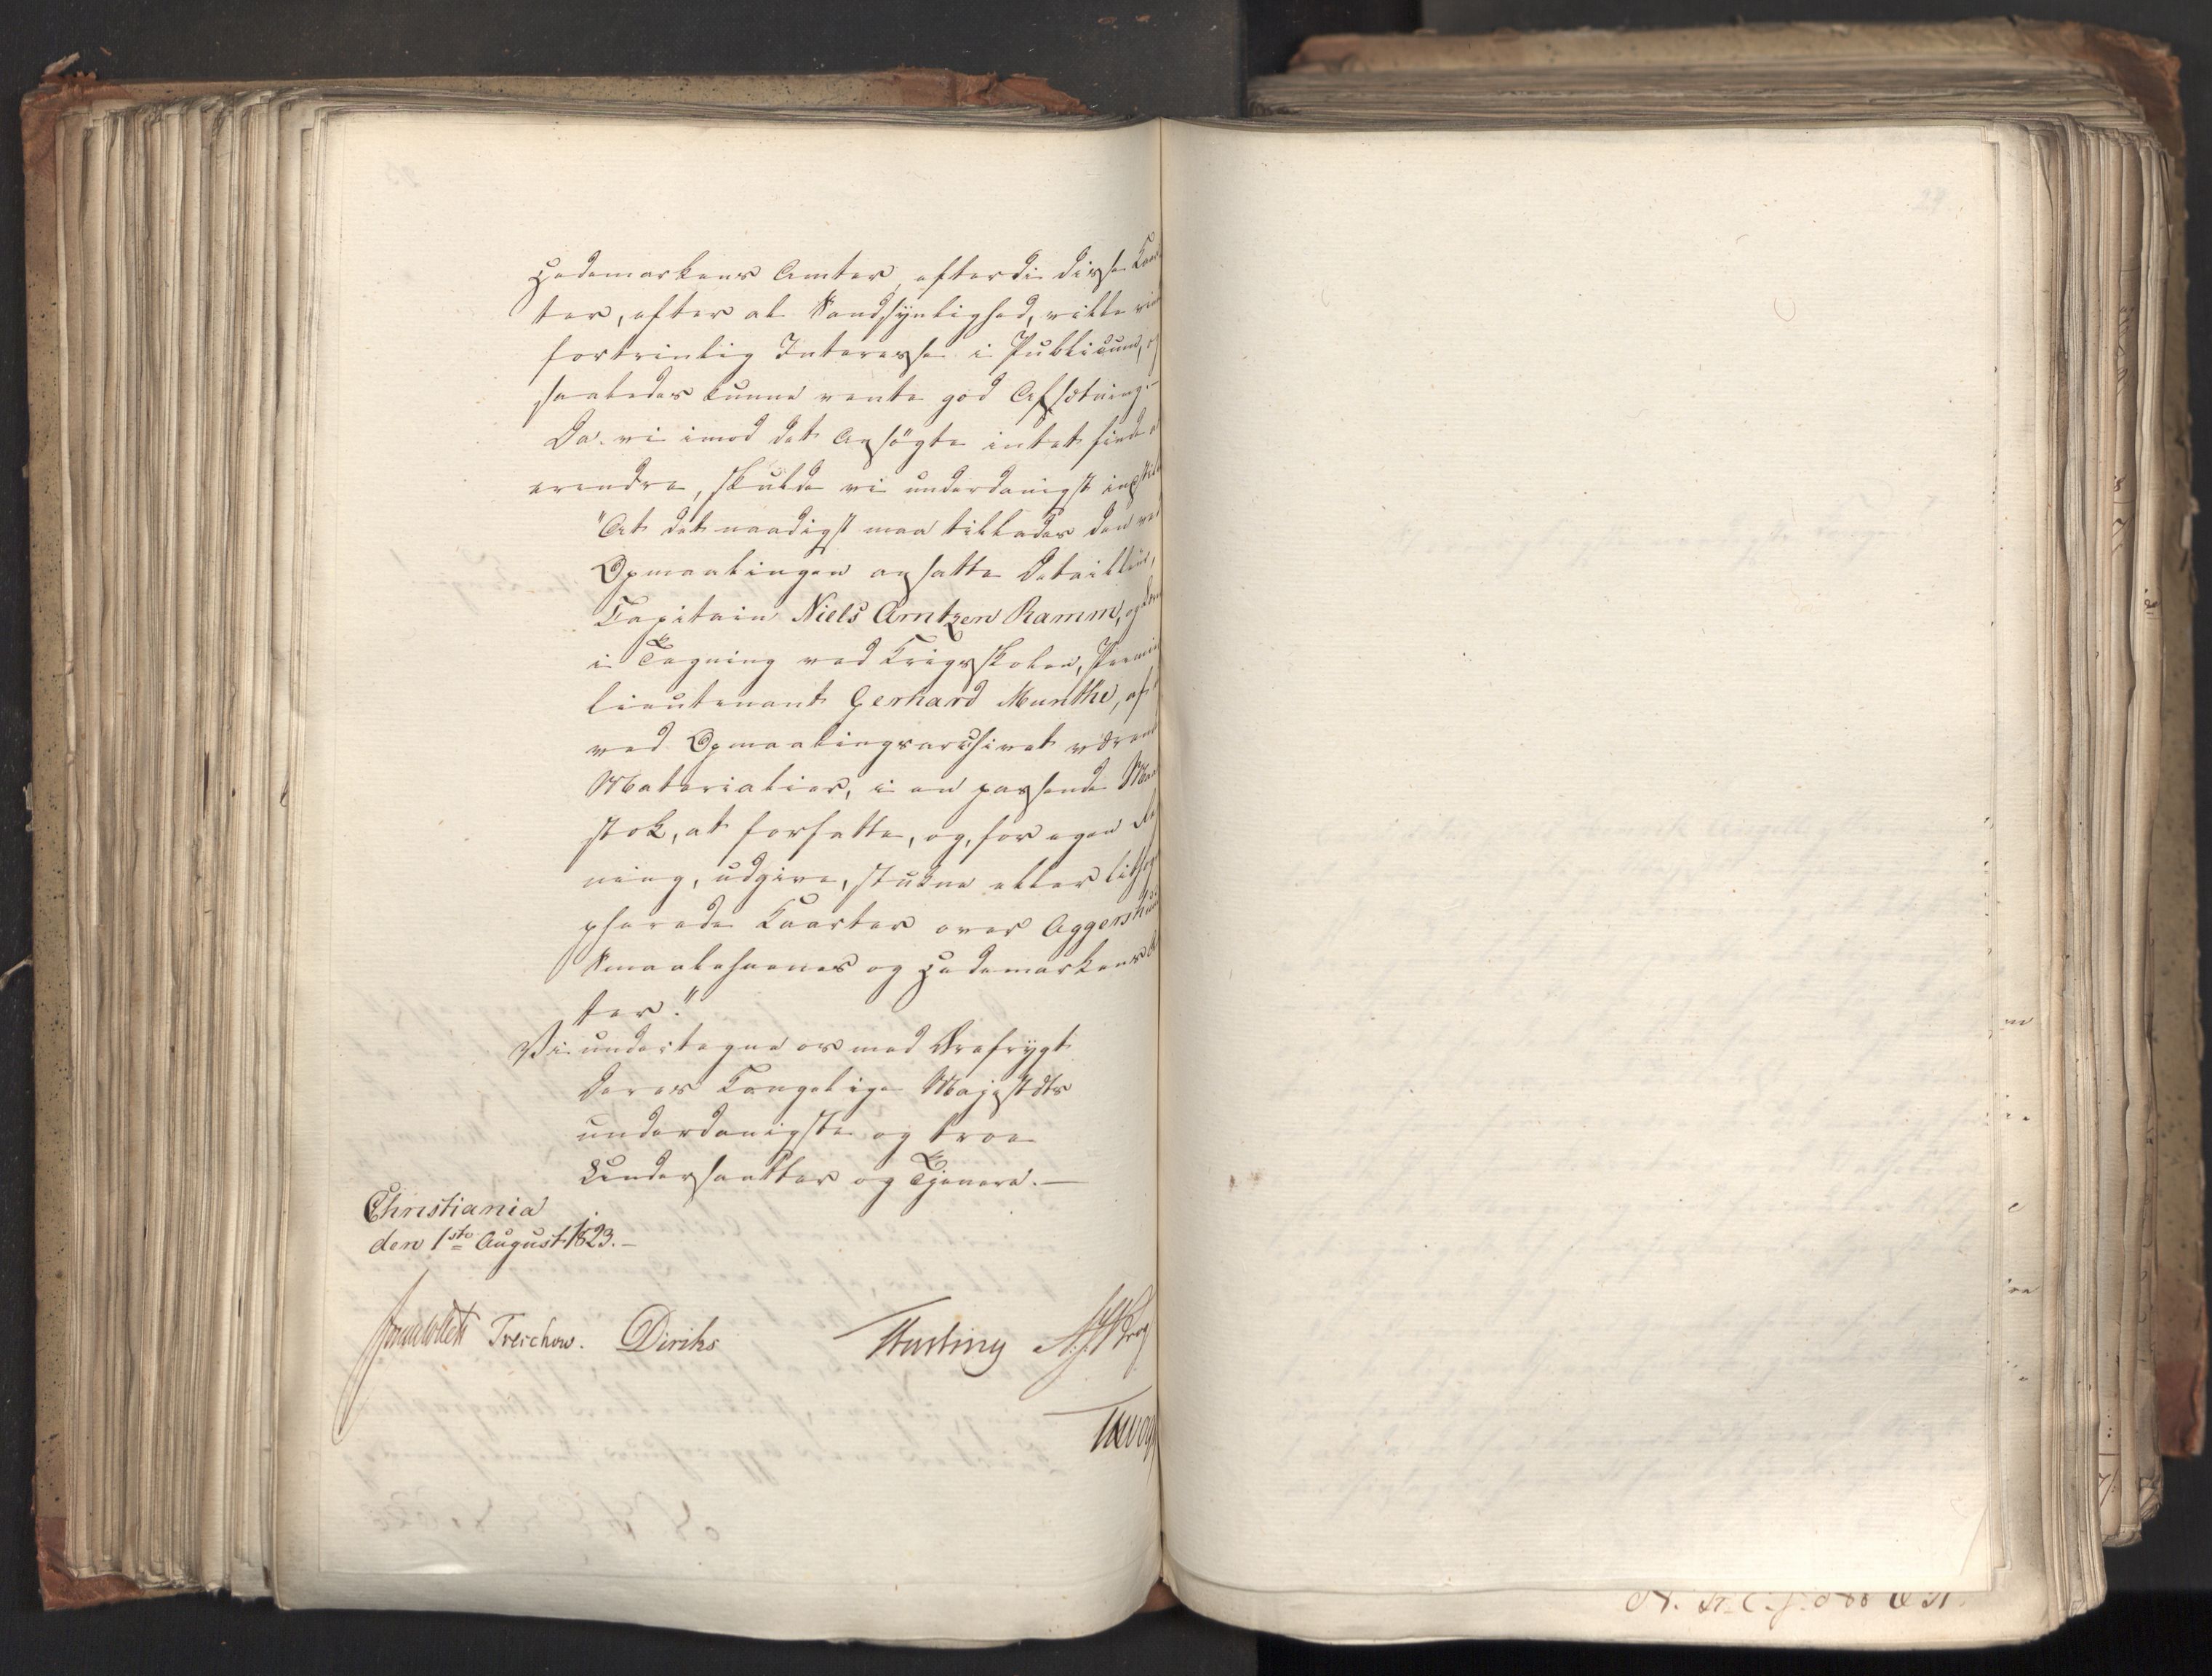 Hedemarkens Amter, efterdi disse Kaar-
ter, efter al Sandsynlighed, ville
fortrinlig Interesse i Publicum,
saaledes kunne vente god Afsætning.-
Da vi imod det Ansøgte intet finde
erendre, skulde vi underdanigst
"At det naadigst maa tillades den ved
Opmaalingen ansatte Detailleur,
Capitain Niels Arntzen Ramm, og
i Tegning ved Krigsskolen, Premier
Lieutenant Gerhard Munthe, af
ved Opmaalingsarchivet værende
Materialier, i en passende Maa
stok, at forfatte, og, for egen
ning, udgive, stukne eller lithogra
pherede Kaarter over Aggershuus
Smaalehnenes og Hedemarkens
ter."
Vi undertegne os med Ærefrygt
Deres Kongelige Majestæts
underdanigste og troe
Undersaatter og Tjenere.—
Christiania
den 1ste August 1823.—
Treschow. Diriks
29